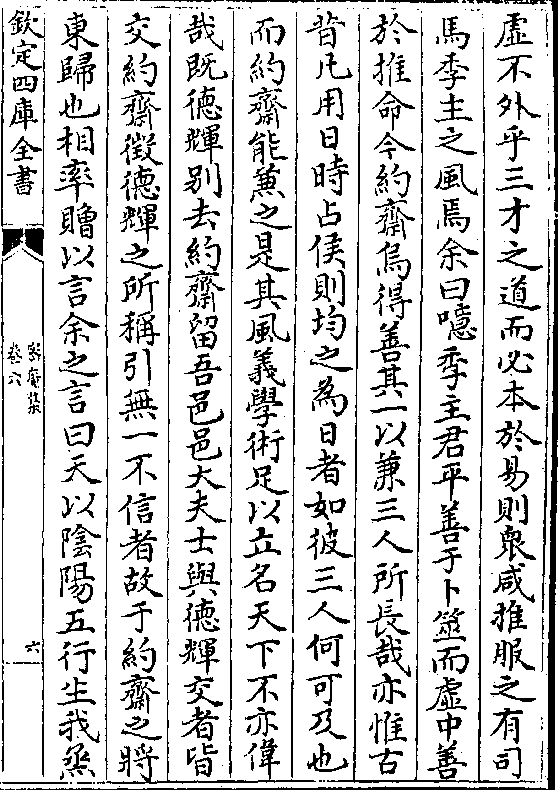 虛不外乎三才之道而必本於易則衆咸推服之有司
馬季主之風焉余曰噫季主君平善于卜筮而虛中善
於推命今約齋烏得善其一以兼三人所長哉亦惟古
昔凡用日時占候則均之為日者如彼三人何可及也
而約齋能兼之是其風義學術足以立名天下不亦偉
哉既德輝别去約齋留吾邑邑大夫士與德輝交者皆
交約齋徴德輝之所稱引無一不信者故于約齋之將
東歸也相率贈以言余之言曰天以陰陽五行生我烝
欽定四庫全書
密菴集
卷六
六